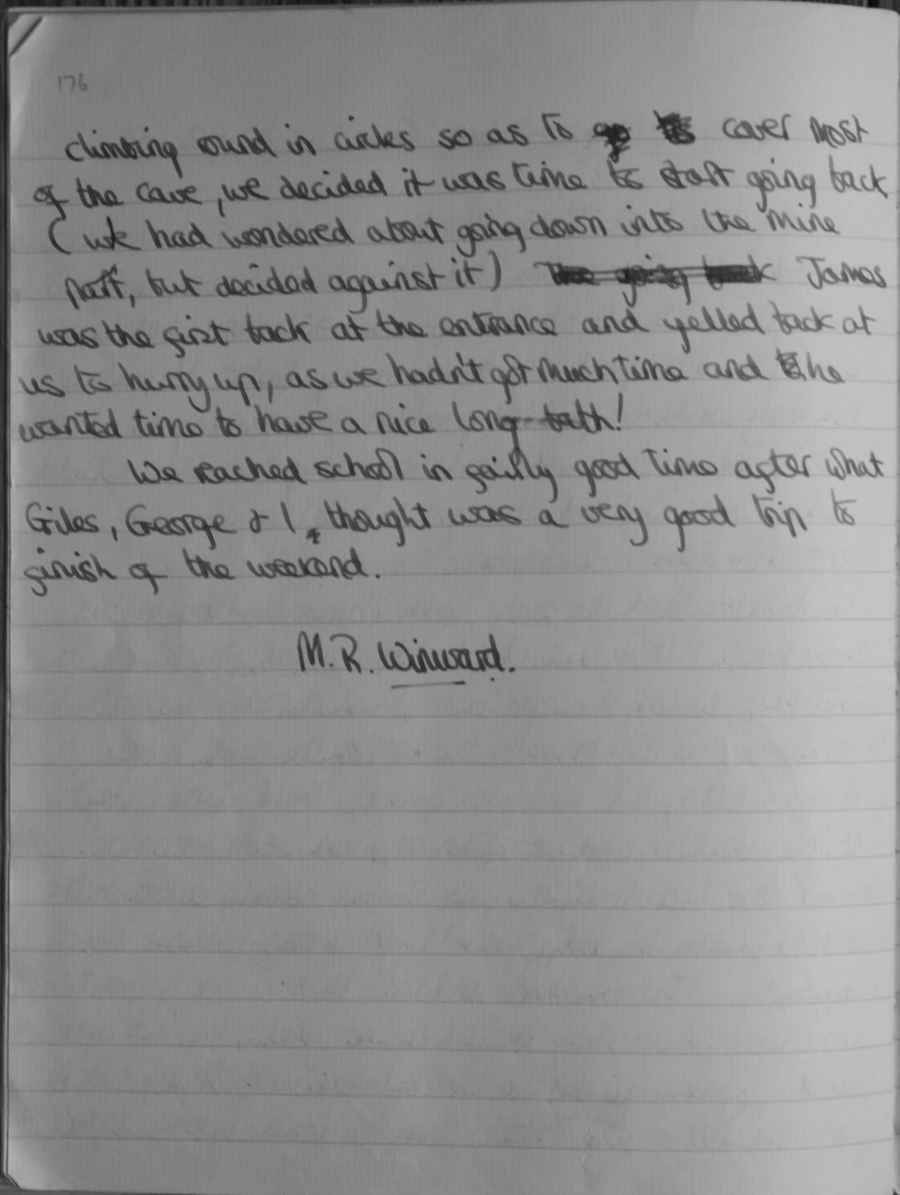 176
climbing round in circles so as to cover most
of the cave, we decided it was time to start going back
(we had wondered about going down into the mine
part, but decided against it) The going back James
was the first back at the entrance and yelled back at
us to hurry up, as we hadn't got much time and he
wanted time to have a nice long bath!
We reached school in fairly good time after what
Giles, George & I, thought was a very good trip to
finish of the weekend.
M.R. Winward.